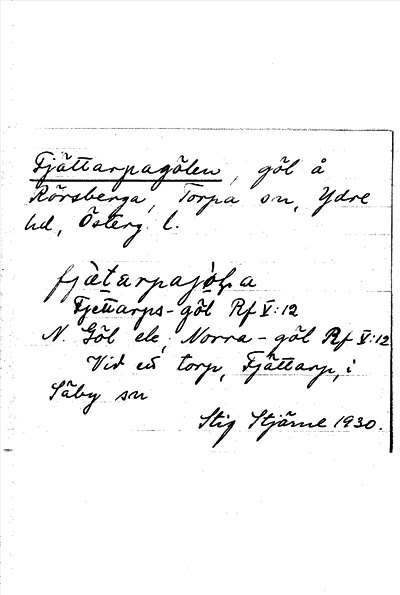 Fjättarpagölen, göl å
Rörsberga, Torpa sn, Ydre
hd, Österg. l.
fjætarpajöla
Fjettarps-göl Rf V:12
N. Göl ek, Norra-göl Rf V:12
Vid ett torp, Fjättarp, i
Säby sn
Stig Stjärne 1930.